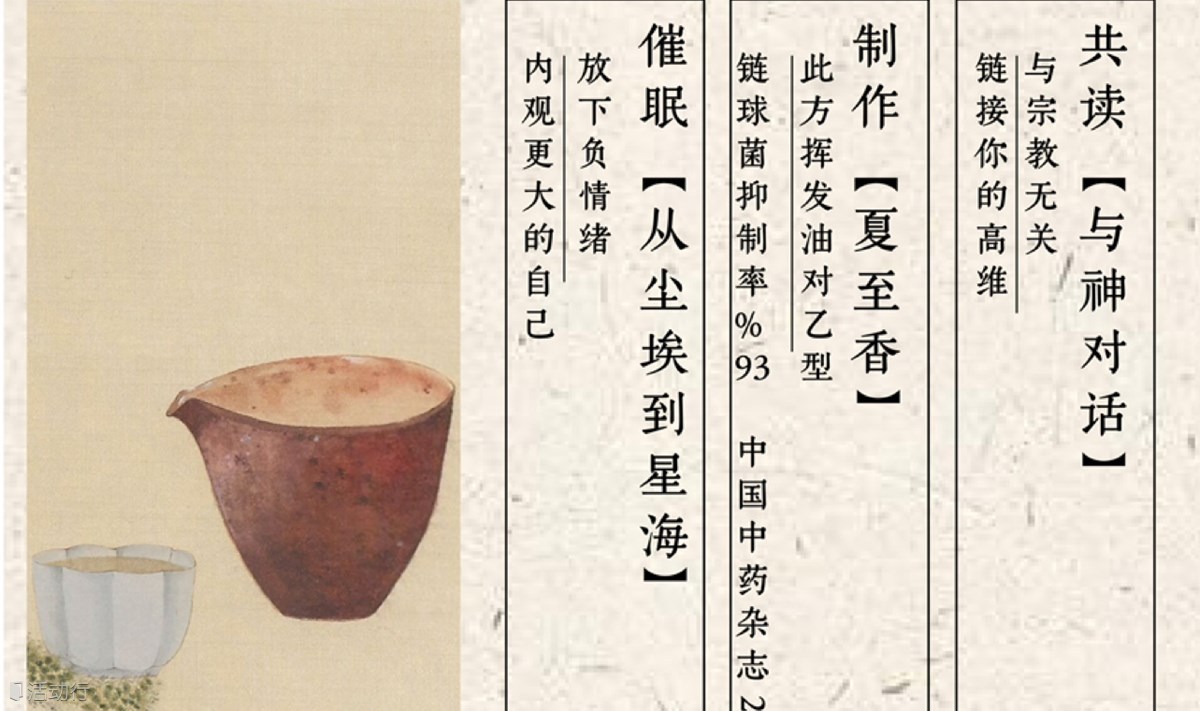 共读【与神对话】
与宗教无关
链接你的高维
制作【夏至香】
此方挥发油对乙型
链球菌抑制率%93 中国中药杂志 2
催眠【从尘埃到星海】
放下负情绪
内观更大的自己
活动行